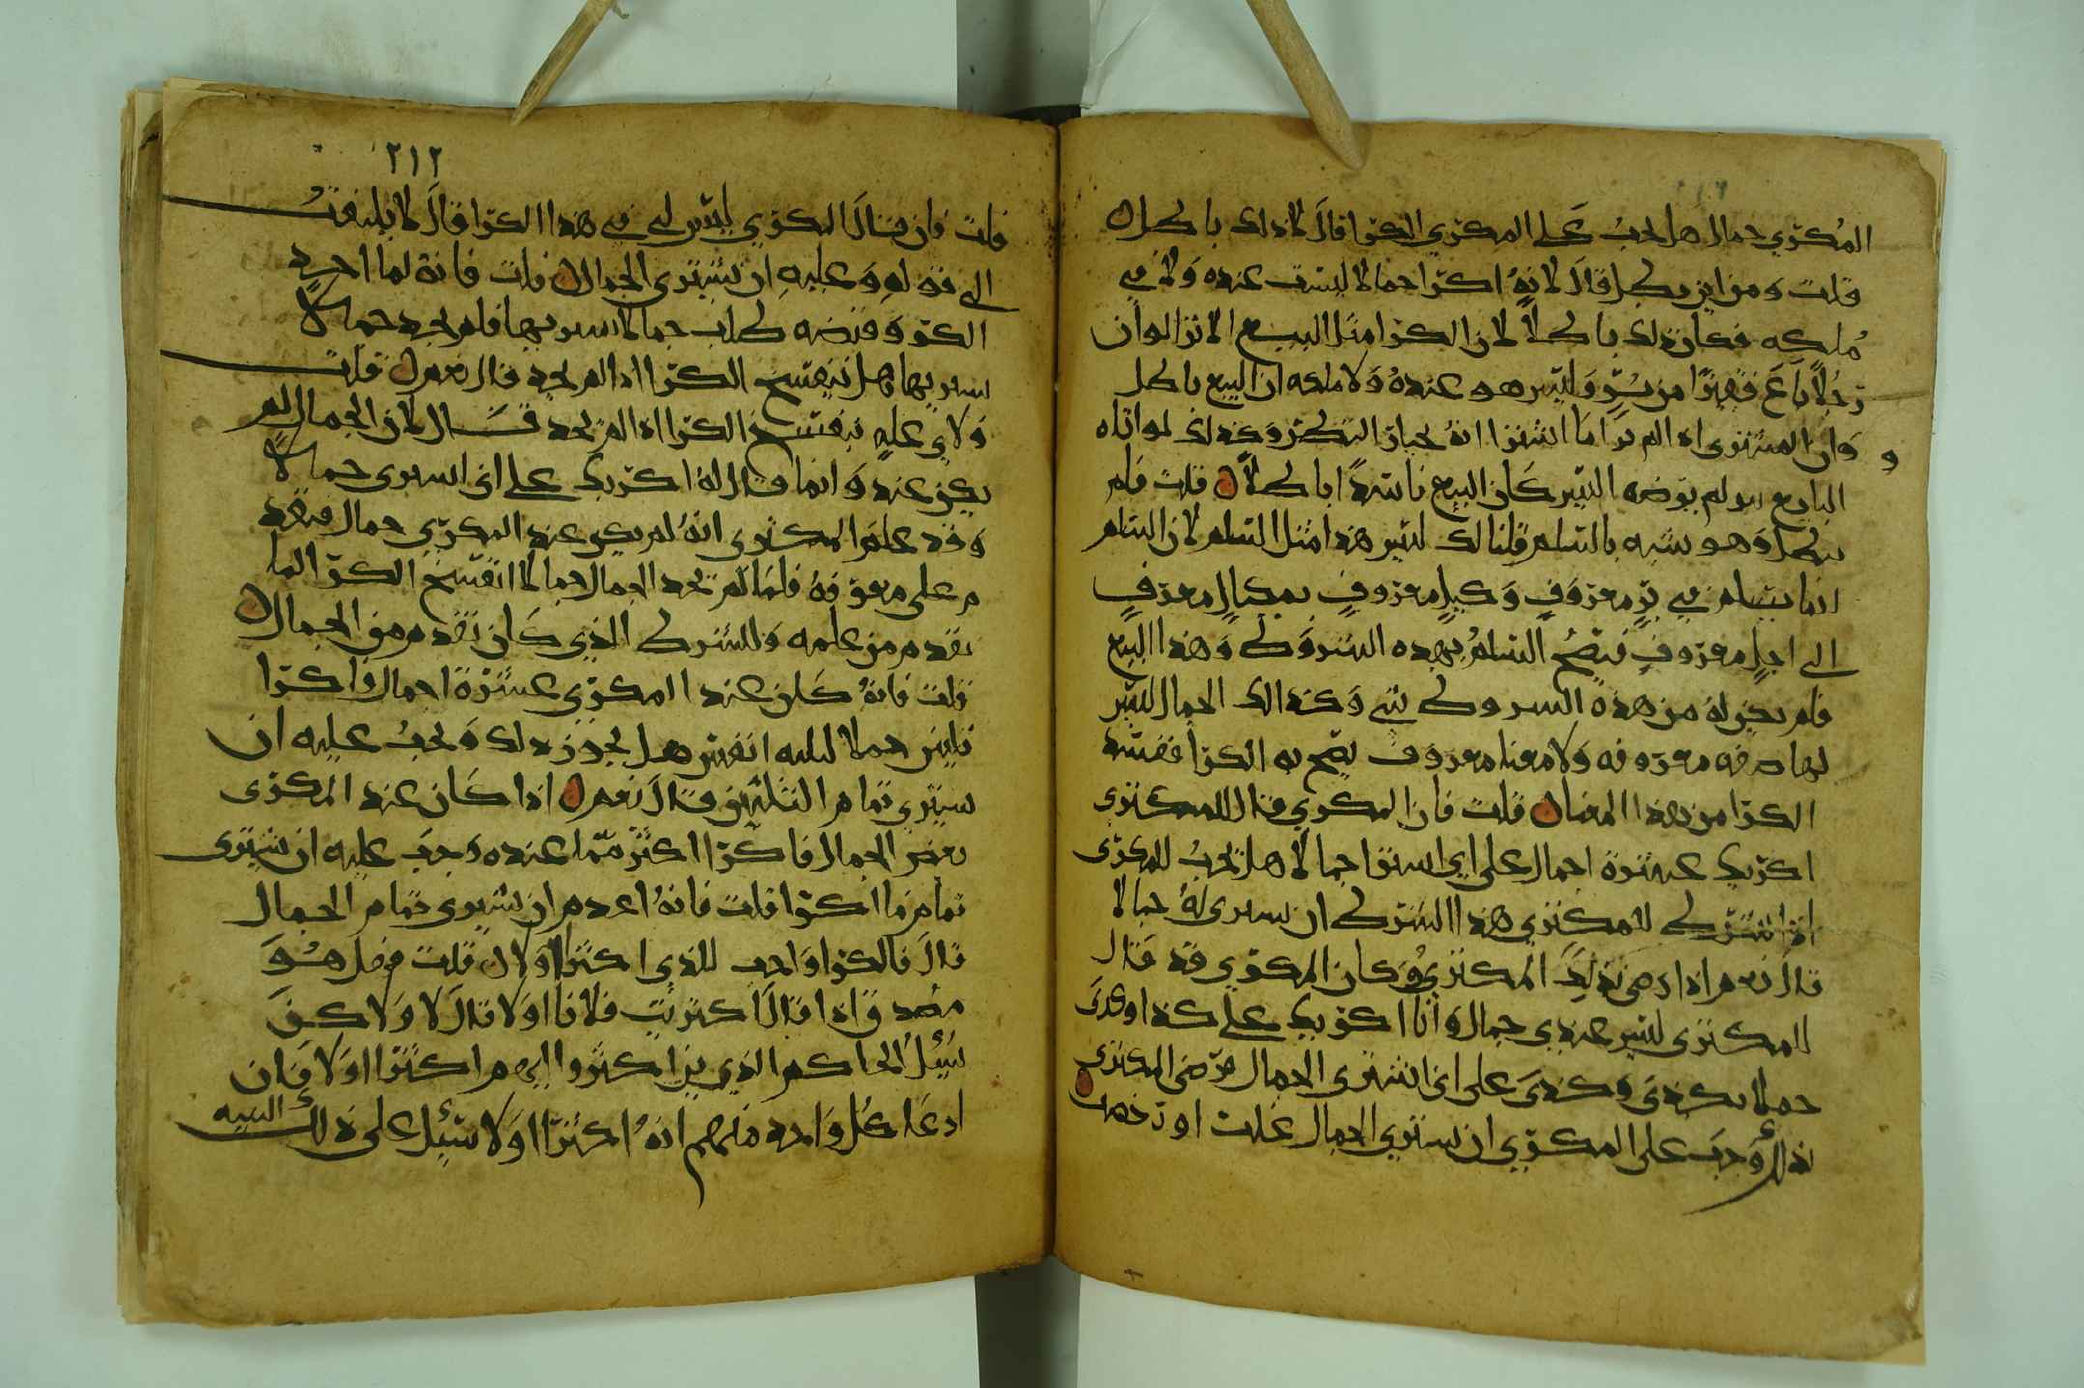 المكري جمال هل يجب على المكري الكرا قال لا ذلك باطل
قلت ومن اين يطل قال لانه اكرا جمالا ليست عنده ولا في
ملكه فكان ذلك باطلا لان الكرا مثل البيع الا ترا لو ان
رجلا باع قفيزا من بر وليس هو عنده ولا ملكه ان البيع باطل
وان المشتري اذا لم ير ما اشترا انه بخيار النظر وكذلك لو اتاه
البايع بو لم يرضه اليس كان البيع فاسدا باطلا قلت فلم
يبطل وهو شبه بالسلم قلنا لك ليس هذا مثل السلم لان السلم
انما يسلم في بر معروف وكيل معروف بمكيال معروف
الى اجل معروف فيصح السلم بهذه الشروط وهذا البيع
فلم يجز له من هذه الشروط شي وكذلك الجمال ليس
لها صفه معروفه ولا معنا معروف يصح به الكرا ففسد
الكرا من هذا المعنا قلت فان المكري قال للمكتري
اكريك عشرة اجمال على اني اشترا جمالا هل يجب للمكري
اذا شرط للمكتري هذا الشرط ان يشتري له جمالا
قال نعم اذا رضي بذلك المكتري وكان المكري قد قال
للمكتري ليس عندي جمال وانا اكريك على كذا وكدى
حملا بكذى وكذى على اني اشتري الجمال فرضي المكتري
بذلك وجب على المكري ان يشتري الجمال غلت او رخصت
٢١٢
قلت فان قال المكري ليس لي في هذا الكرا قال لا يلتفت
الى قوله وعليه ان يشتري الجمال قلت فانه لما اخذ
الكرا وقبضه طلب جمالا يشتريها فلم يجد جمالا
يشتريها هل ينفسخ الكرا اذا لم يجد قال نعم قلت
ولاي عله ينفسخ الكرا اذا لم يجد قال لان الجمال لم
يكن عنده وانما قال له اكريك على اني اشتري جمالا
وقد علم المكتري انه لم يكن عند المكري جمال فتقد
م على معرفه فلما لم يجد الجمال جمالا انفسخ الكرا لما
تقدم من علمه وللشرط الذي كان تقدم من الجمال
قلت فانه كان عند المكري عشرة اجمال واكرا
ثلثين حملا لثلثه انفس هل يجوز ذلك ويجب عليه ان
يشتري تمام الثلثين قال نعم اذا كان عند المكري
بعض الجمال فاكرا اكثر مما عنده وجب عليه ان يشتري
تمام ما اكرا قلت فانه اعدم ان يشتري تمام الجمال
قال فالكرا واجب للذي اكترا اولا قلت فهل هو
مصدق اذا قال اكتريت فلانا اولا قال لا ولاكن
يسئل الحاكم الذين اكتروا ايهم اكترا اولا فان
ادعا كل واحد منهم انه اكترا اولا سئل على ذلك البينه